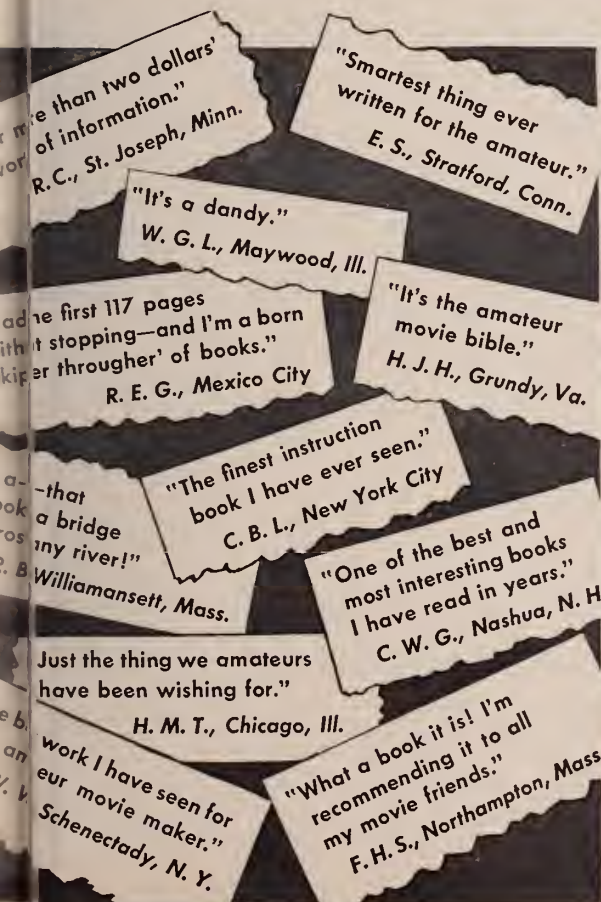 than two dollars'
of information."
R.C., St. Joseph, Minn.
"Smartest thing ever
written for the amateur."
E. S., Stratford, Conn.
"It's a dandy."
W. G. L., Maywood, Ill.
first 117 pages
stopping—and I'm a born
througher' of books."
R. E. G., Mexico City
"It's the amateur
movie bible."
H. J. H., Grundy, Va.
"The finest instruction
book I have ever seen."
C. B. L., New York City
a—that
a bridge
any river!"
Williamansett, Mass.
"One of the best and
most interesting books
I have read in years."
C. W. G., Nashua, N. H
Just the thing we amateurs
have been wishing for."
H. M. T., Chicago, Ill.
work I have seen for
eur movie maker."
Schenectady, N. Y.
"What a book it is! I'm
recommending it to all
my movie friends."
F. H. S., Northampton, Mass